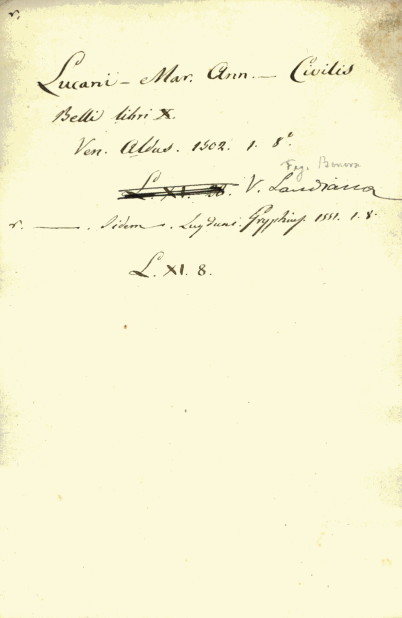 r.
Lucani - Mar. Ann. - Civilis
Belli libri X.
Ven. Aldus. 1502. 1. 8°
L. XI. 28. V. Landiana
r. ——. Iidem. Lugduni. Gryphius. 1551. 1. 8.
L. XI. 8.